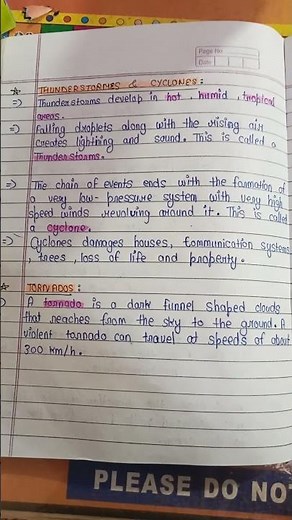 Page No.
Date
☆ THUNDERSTORMES & CYCLONES :
=> Thunderstorms develop in hot, humid, tropical
areas.
=> Falling droplets along with the rising air
creates lightning and sound. This is called a
thunderstorms.
=> The chain of events ends with the formation of
a very low-pressure system with very high
speed winds revolving around it. This is called
a cyclone.
=> Cyclones damages houses, Communication systems
, trees, loss of life and property.
☆ TORNADOS :
A tornado is a dark funnel shaped clouds
that reaches from the sky to the ground. A
violent tornado can travel at speeds of about
300 km/h.
PLEASE DO NO